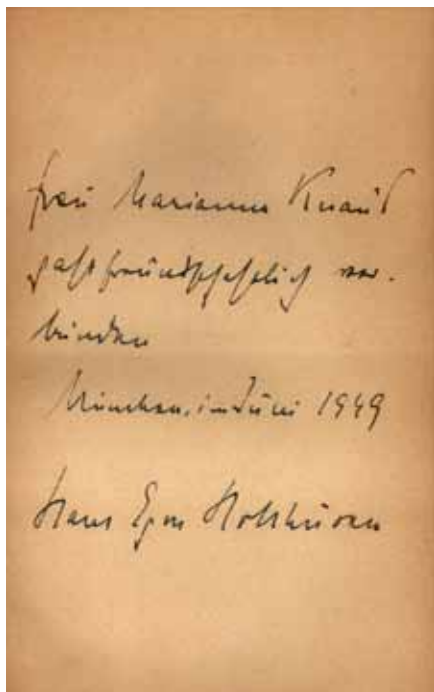 Frau Marianne Knaus
gastfreundschaftlich ver-
bunden
München, im Juni 1949
Hans Egon Holthusen